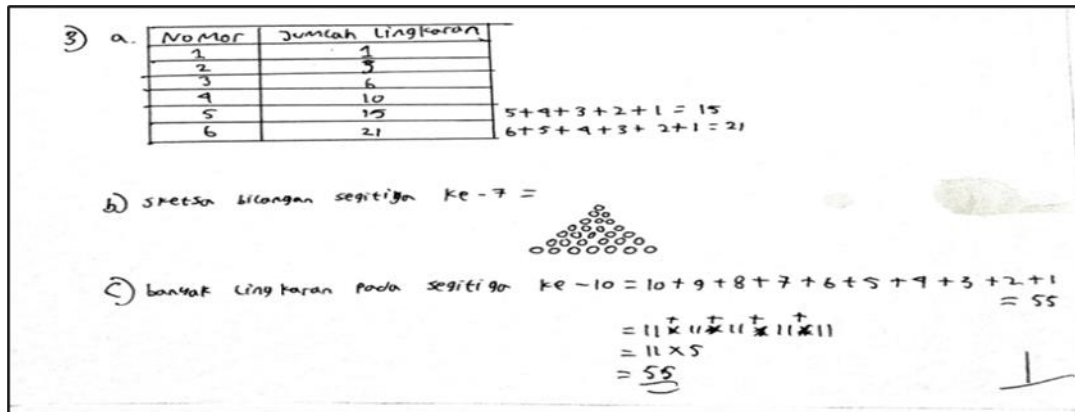 3) a. Nomor Jumlah Lingkaran
1 1
2 3
3 6
4 10
5 15 5+4+3+2+1 = 15
6 21 6+5+4+3+2+1 = 21
b) sketsa bilangan segitiga ke-7 =
c) banyak lingkaran pada segitiga ke-10 = 10+9+8+7+6+5+4+3+2+1
= 55
= 11 + 11 + 11 + 11 + 11
= 11 x 5
= 55